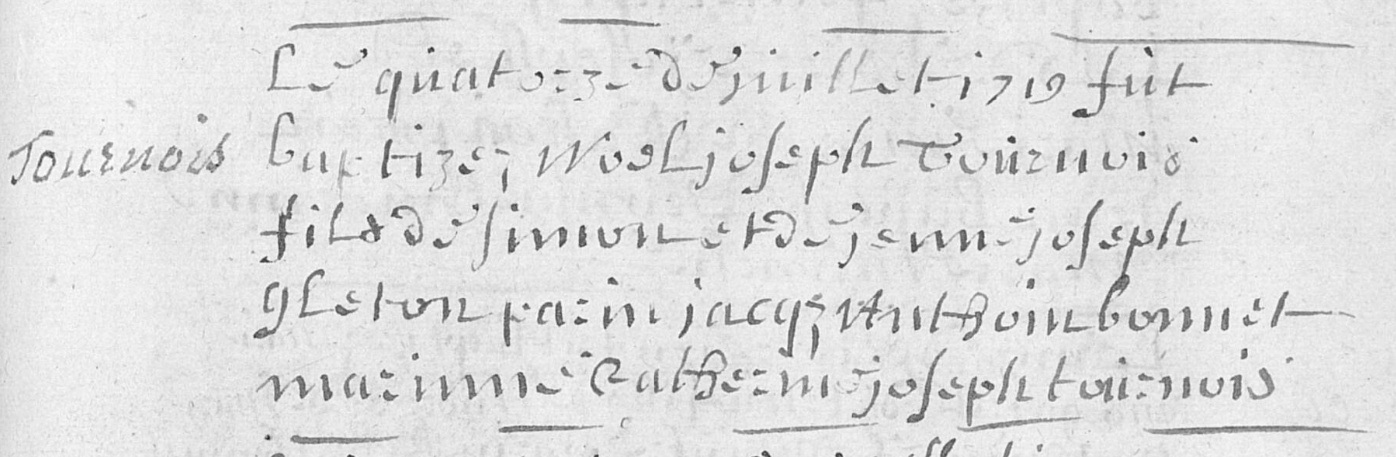 Le quatorze de juillet 1719 fut
Tournois baptizez Noel joseph Tournois
fils de simon et de jenne joseph
gleton parin jacqz Anthoin bonnet
marinne Catherine joseph tournois